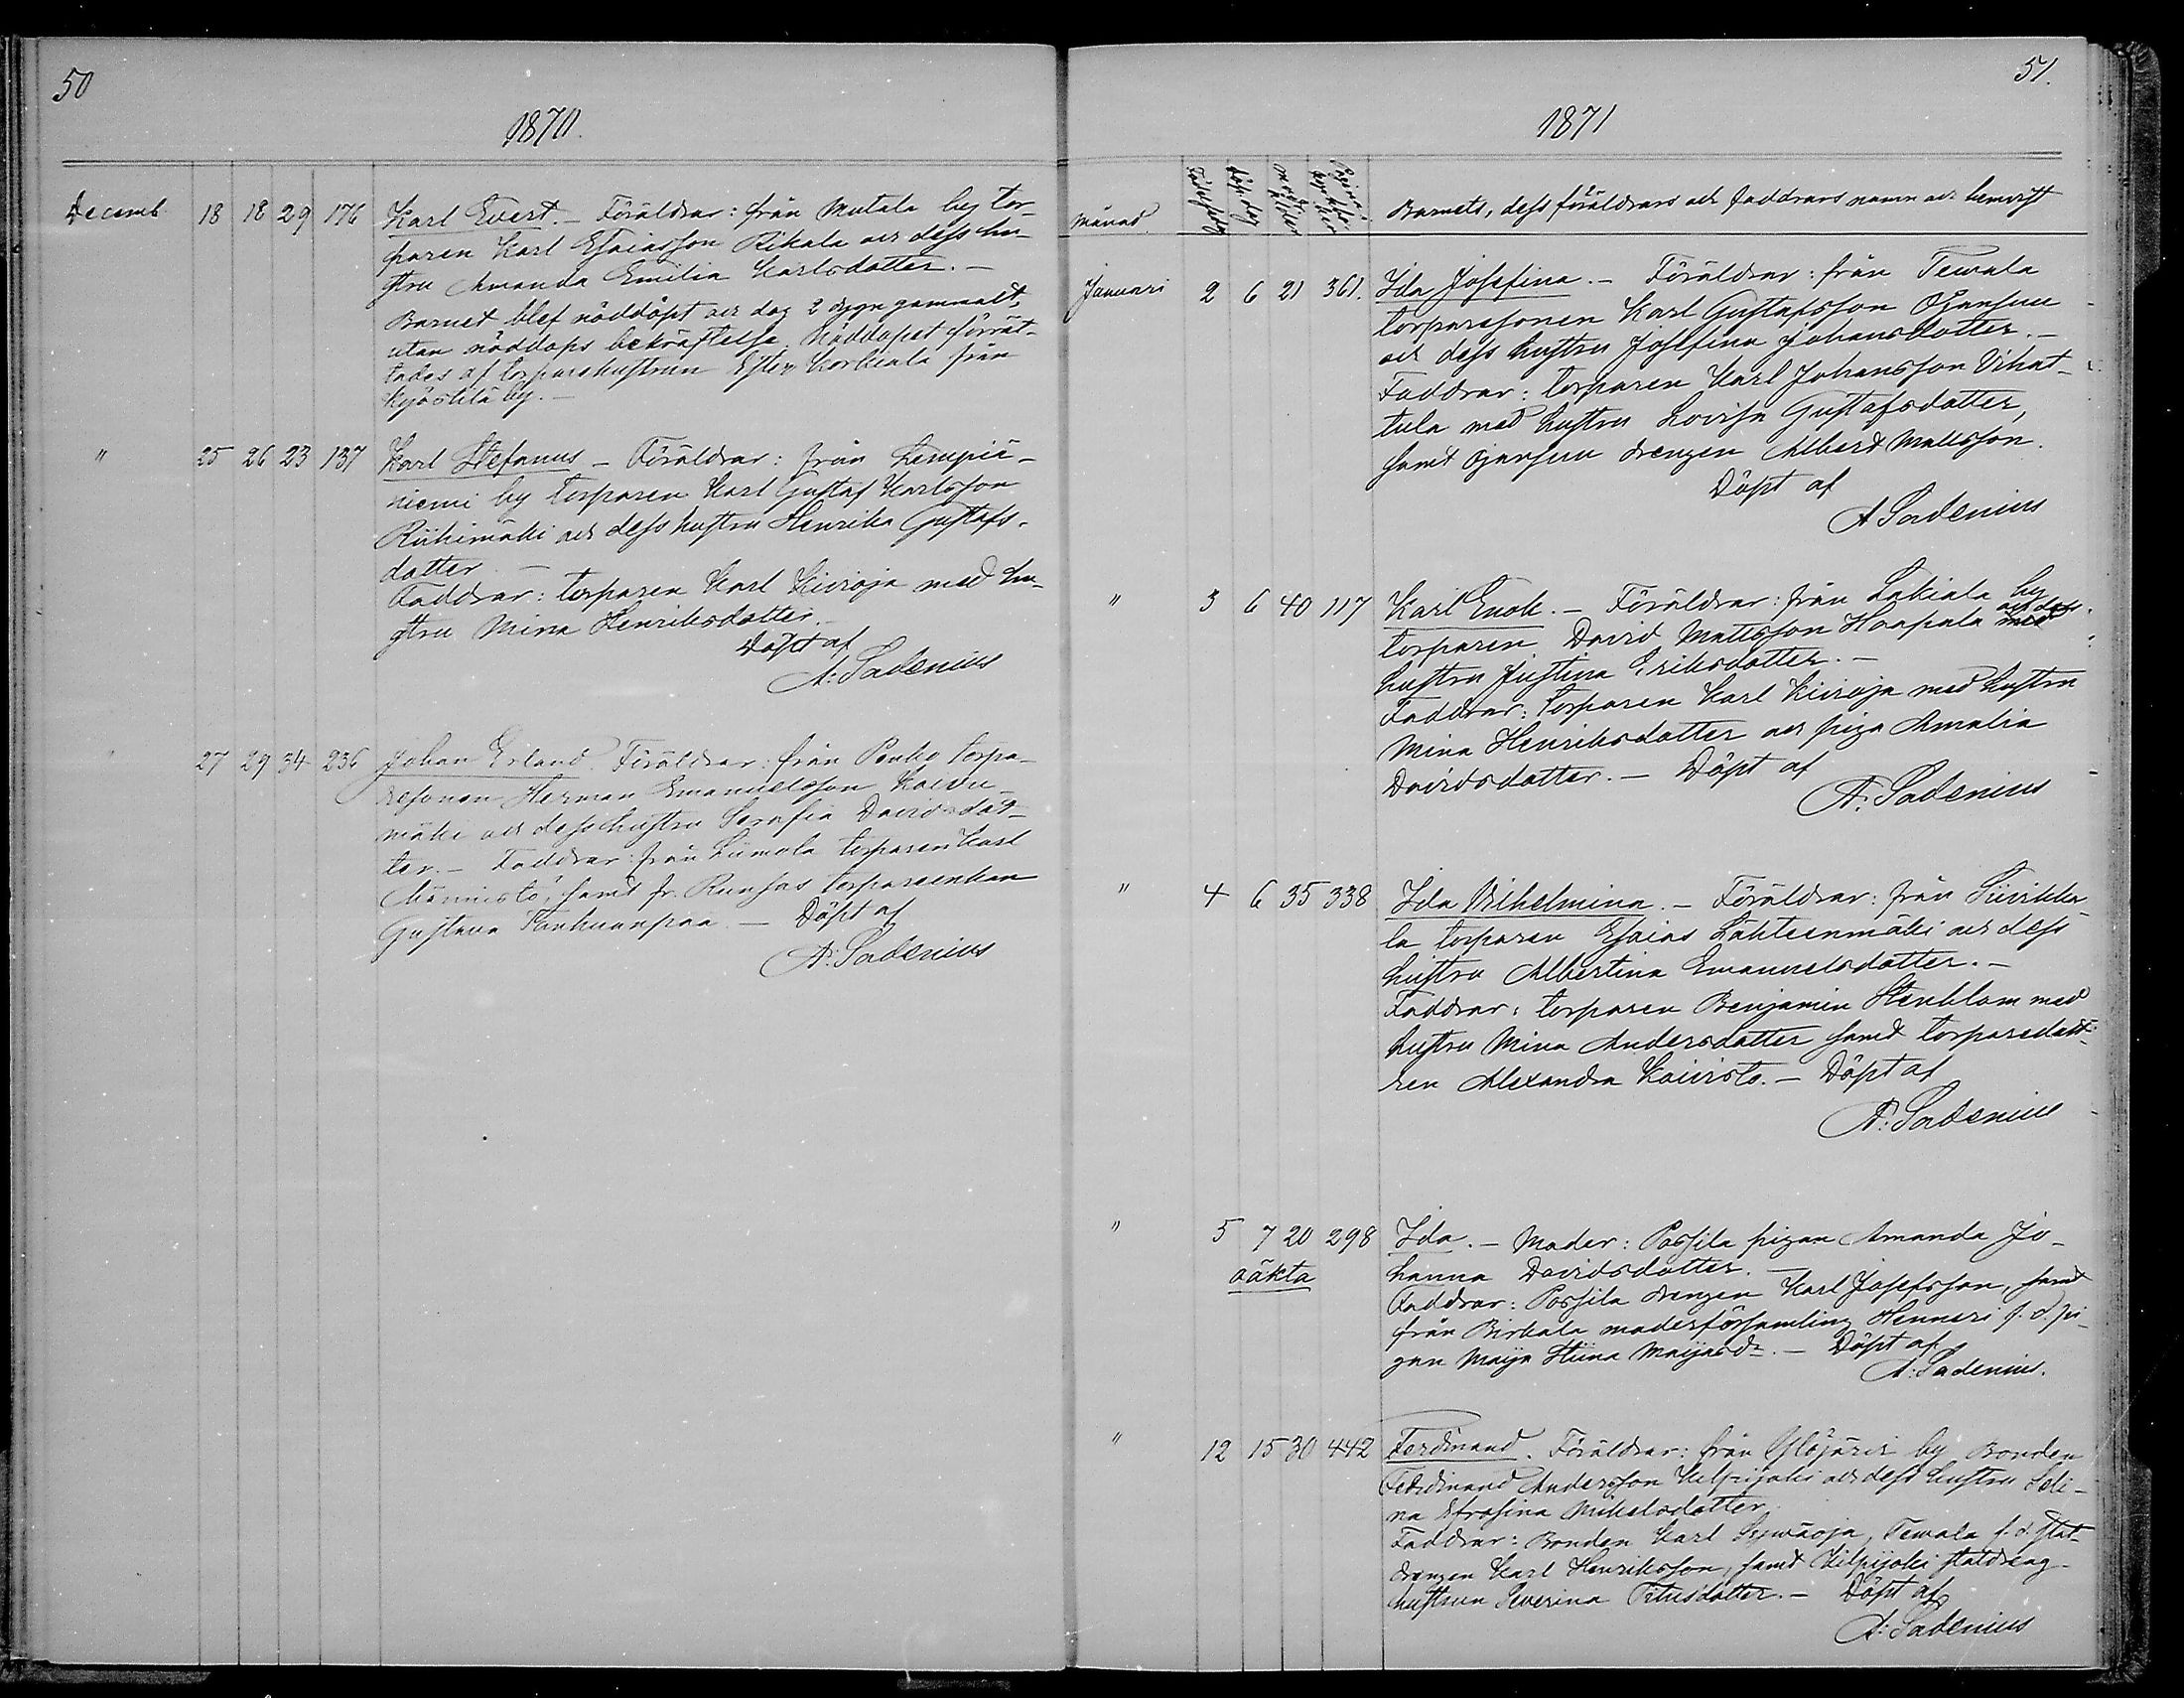 50
1870.
Decemb. 18 18 29 176 Karl Evert. – Föräldrar: från Mutala by tor-
paren Karl Esaiasson Rikala och dess hu-
stru Amanda Emilia Karlsdotter. –
Barnet blef nöddöpt och dog 2 dygn gammalt,
utan nöddops bekräftelse. Nöddopet förrät-
tades af torparehustrun Ester Korkeala från
Kyöstilä by. –
" 25 26 23 137 Karl Stefanus – Föräldrar: från Lempiä-
niemi by torparen Karl Gustaf Karlsson
Riihimäki och dess hustru Henrika Gustafs-
dotter –
Faddrar: torparen Karl Kivioja med hu-
stru Mina Henriksdotter. –
Döpt af
A: Sadenius
" 27 29 34 236 Johan Erland. Föräldrar: från Penho torpa-
resonen Herman Emanuelsson Koivu-
mäki och dess hustru Serafia Davidsdot-
ter. – Faddrar: från Liimola torparen Karl
Männistö, samt fr. Runsas torpareenkan
Gustava Tanhuanpää. – Döpt af
A: Sadenius
51.
1871
Månad. Födelsedag Döpelsedag Barnets, dess föräldrars och faddrars namn och hemvist
Januari 2 6 21 361. Ida Josefina. – Föräldrar: från Tevala
torparesonen Karl Gustafsson Ojansuu
och dess hustru Josefina Johansdotter. –
Faddrar: torparen Karl Johansson Vihat-
tula med hustru Lovisa Gustafsdotter,
samt Ojansuu drengen Albert Mattsson.
Döpt af
A Sadenius
" 3 6 40 117 Karl Enok. – Föräldrar: från Lakiala by
torparen David Mattsson Haapala med och dess
hustru Justina Eriksdotter. –
Faddrar: torparen Karl Kivioja med hustru
Mina Henriksdotter och piga Amalia
Davidsdotter. – Döpt af
A. Sadenius
" 4 6 35 338 Ida Vilhelmina. – Föräldrar: från Siivikka-
la torparen Esaias Lähteenmäki och dess
hustru Albertina Emanuelsdotter. –
Faddrar: torparen Benjamin Stenblom med
hustru Mina Andersdotter samt torparedott-
ren Alexandra Koivisto. – Döpt af
A: Sadenius
" 5 7 20 298 Ida. – Moder: Possila pigan Amanda Jo-
oäkta hanna Davidsdotter. –
Faddrar: Possila drengen Karl Josefsson, samt
från Birkala moderförsamling Henneri f. d. pi-
gan Maija Stiina Maijasdr. – Döpt af
A: Sadenius.
" 12 15 30 442 Ferdinand. Föräldrar: från Ylöjärvi by Bonden
Ferdinand Andersson Kilpijoki och dess hustru Seli-
na Efrosina Mikelsdotter
Faddrar: Bonden Karl Sywäoja, Tewala f. d. stat-
drengen Karl Henriksson, samt Kilpijoki statdreng-
hustrun Severina Titusdotter. – Döpt af
A: Sadenius